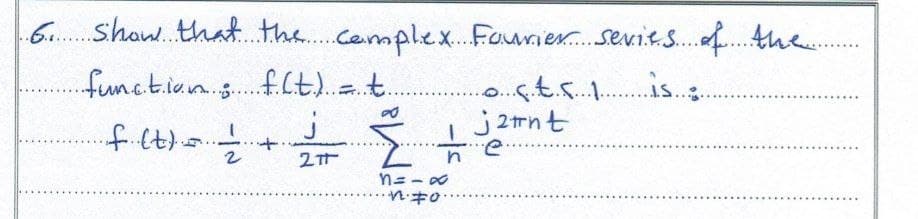 6. Show that the complex Fourier series of the
function: f(t) = t 0 ≤ t ≤ 1 is:
f(t) = 1/2 + j/2π ∞∑n=-∞ n≠0 1/n e^j2πnt